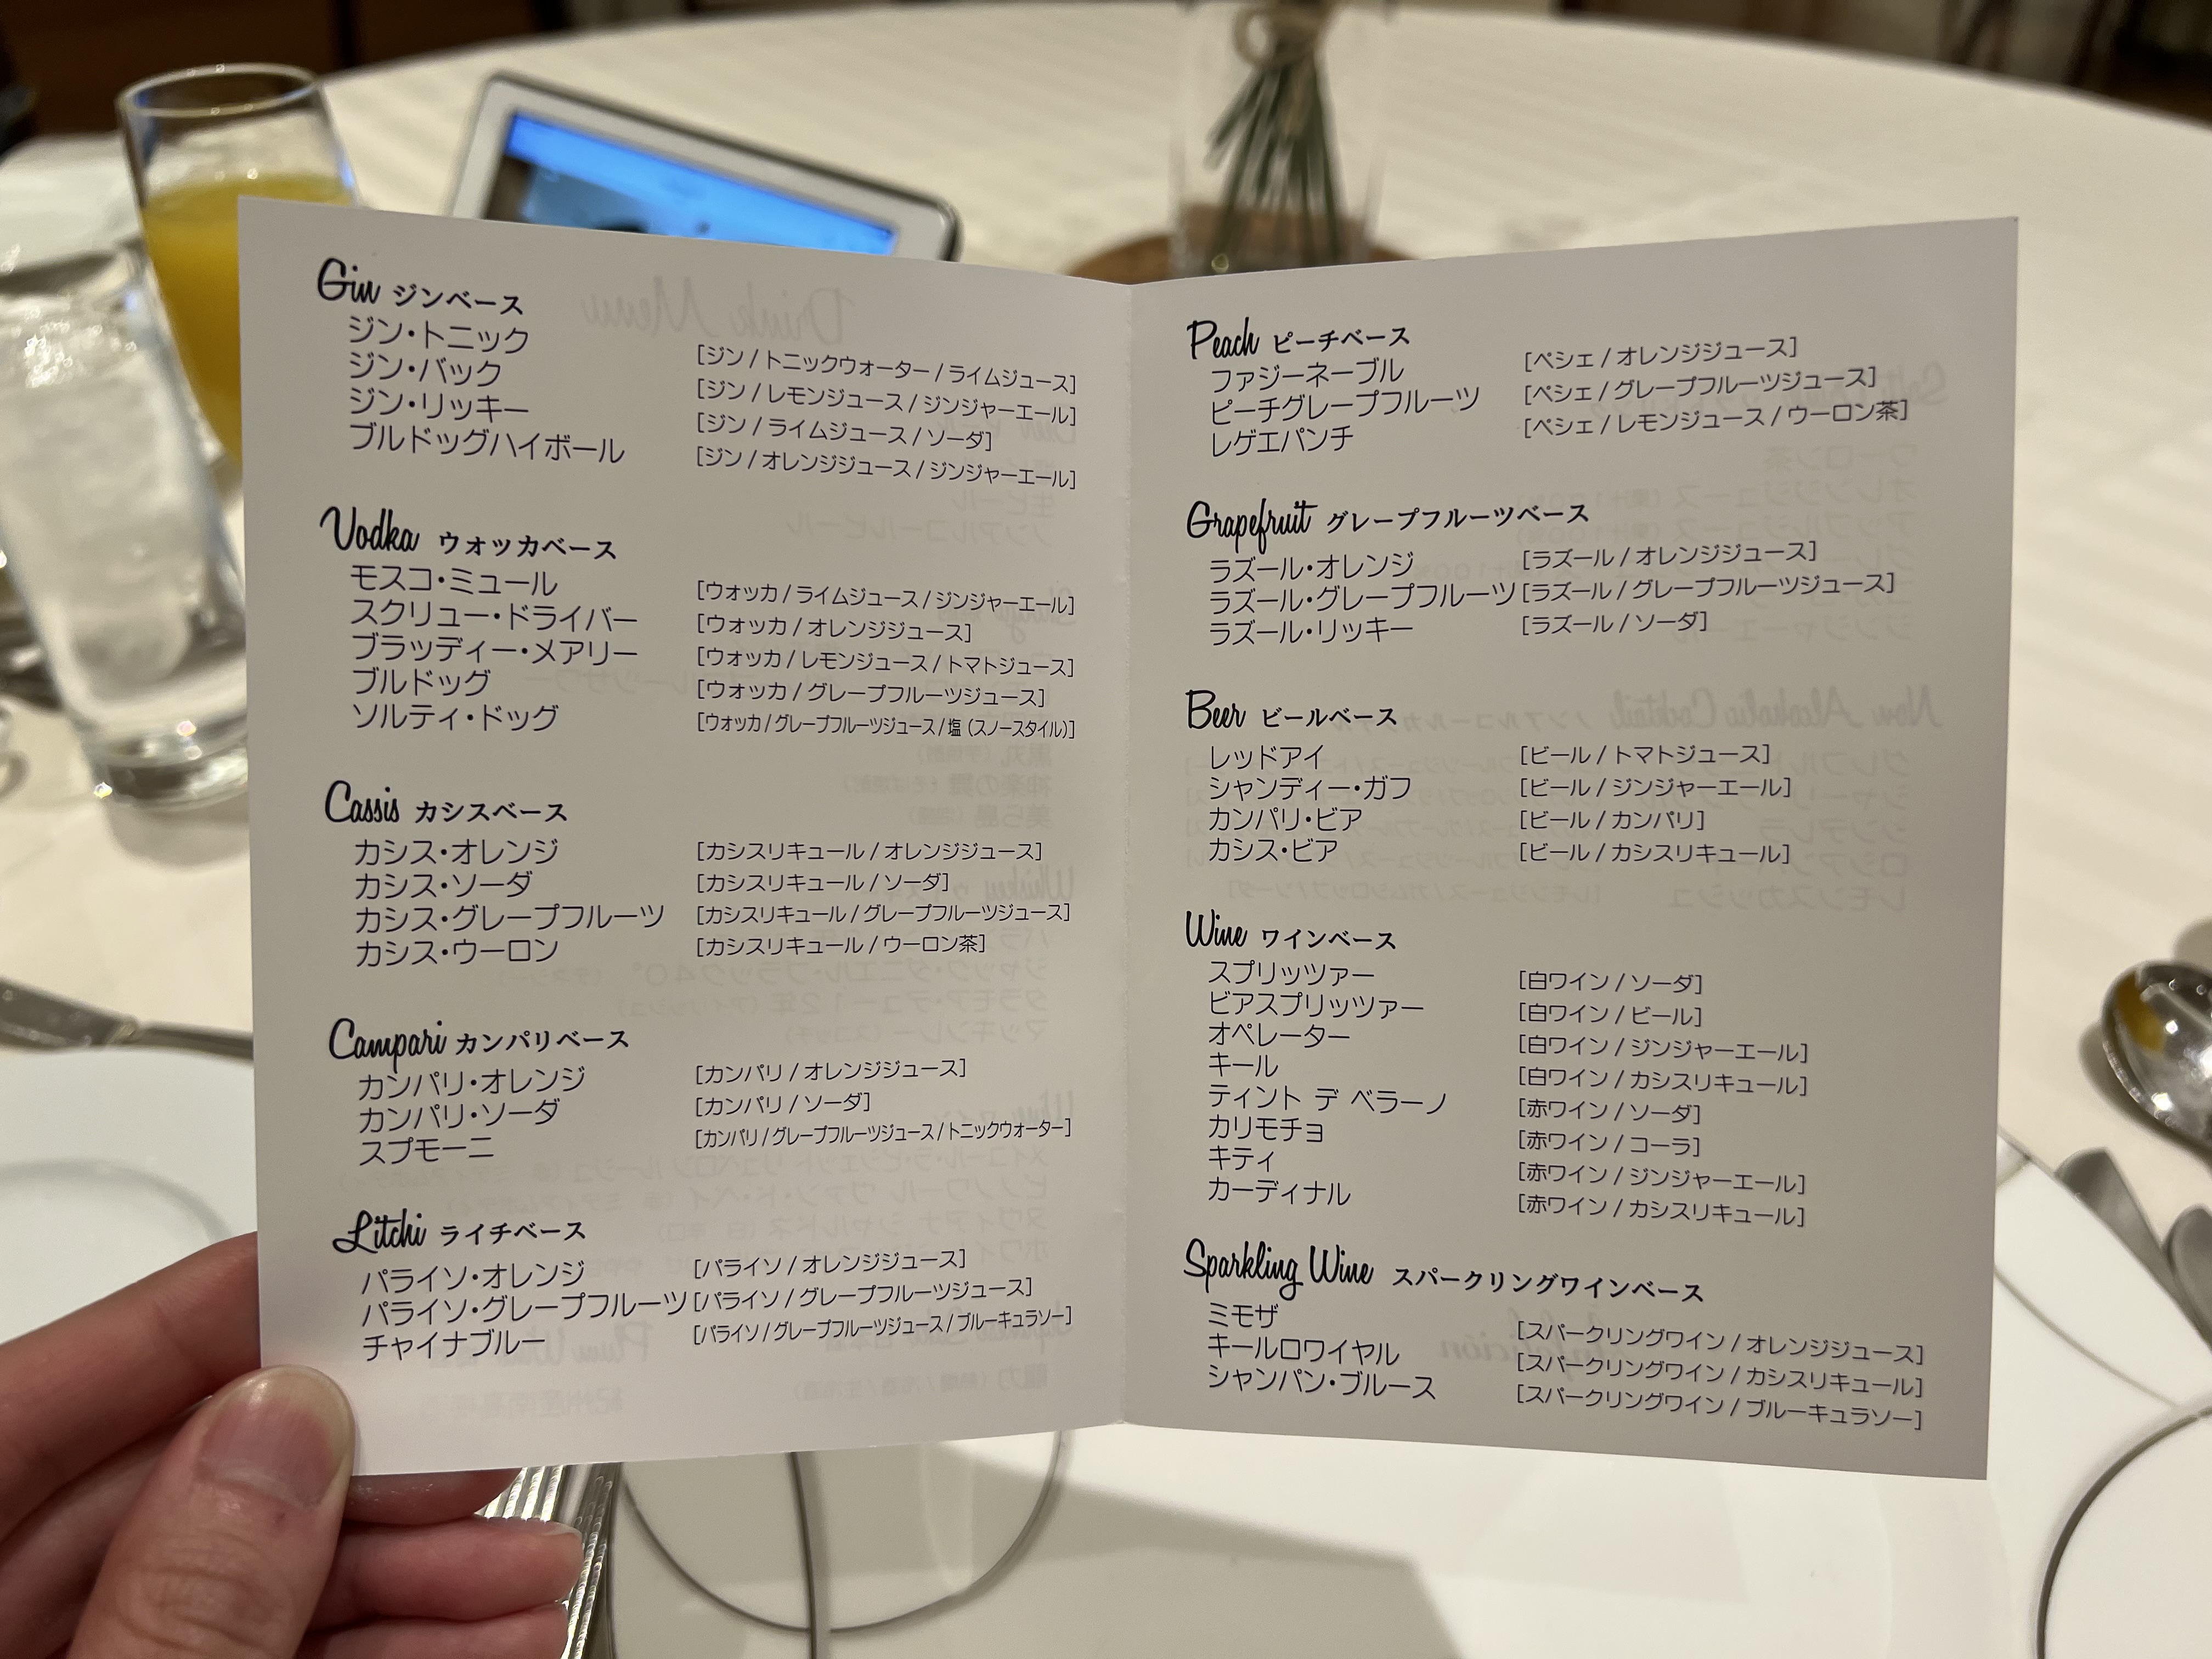 Gin ジンベース
ジン・トニック [ジン / トニックウォーター / ライムジュース]
ジン・バック [ジン / レモンジュース / ジンジャーエール]
ジン・リッキー [ジン / ライムジュース / ソーダ]
ブルドッグハイボール [ジン / オレンジジュース / ジンジャーエール]
Vodka ウオッカベース
モスコ・ミュール [ウォッカ / ライムジュース / ジンジャーエール]
スクリュー・ドライバー [ウォッカ / オレンジジュース]
ブラッディー・メアリー [ウォッカ / レモンジュース / トマトジュース]
ブルドッグ [ウォッカ / グレープフルーツジュース]
ソルティ・ドッグ [ウォッカ / グレープフルーツジュース / 塩 (スノースタイル)]
Cassis カシスベース
カシス・オレンジ [カシスリキュール / オレンジジュース]
カシス・ソーダ [カシスリキュール / ソーダ]
カシス・グレープフルーツ [カシスリキュール / グレープフルーツジュース]
カシス・ウーロン [カシスリキュール / ウーロン茶]
Campari カンパリベース
カンパリ・オレンジ [カンパリ / オレンジジュース]
カンパリ・ソーダ [カンパリ / ソーダ]
スプモーニ [カンパリ / グレープフルーツジュース / トニックウォーター]
Litchi ライチベース
パライソ・オレンジ [パライソ / オレンジジュース]
パライソ・グレープフルーツ [パライソ / グレープフルーツジュース]
チャイナブルー [パライソ / グレープフルーツジュース / ブルーキュラソー]
Peach ピーチベース
ファジーネーブル [ペシェ / オレンジジュース]
ピーチグレープフルーツ [ペシェ / グレープフルーツジュース]
レゲエパンチ [ペシェ / レモンジュース / ウーロン茶]
Grapefruit グレープフルーツベース
ラズール・オレンジ [ラズール / オレンジジュース]
ラズール・グレープフルーツ [ラズール / グレープフルーツジュース]
ラズール・リッキー [ラズール / ソーダ]
Beer ビールベース
レッドアイ [ビール / トマトジュース]
シャンディー・ガフ [ビール / ジンジャーエール]
カンパリ・ビア [ビール / カンパリ]
カシス・ビア [ビール / カシスリキュール]
Wine ワインベース
スプリッツァー [白ワイン / ソーダ]
ビアスプリッツァー [白ワイン / ビール]
オペレーター [白ワイン / ジンジャーエール]
キール [白ワイン / カシスリキュール]
ティント デ ベラーノ [赤ワイン / ソーダ]
カリモチョ [赤ワイン / コーラ]
キティ [赤ワイン / ジンジャーエール]
カーディナル [赤ワイン / カシスリキュール]
Sparkling Wine スパークリングワインベース
ミモザ [スパークリングワイン / オレンジジュース]
キールロワイヤル [スパークリングワイン / カシスリキュール]
シャンパン・ブルース [スパークリングワイン / ブルーキュラソー]